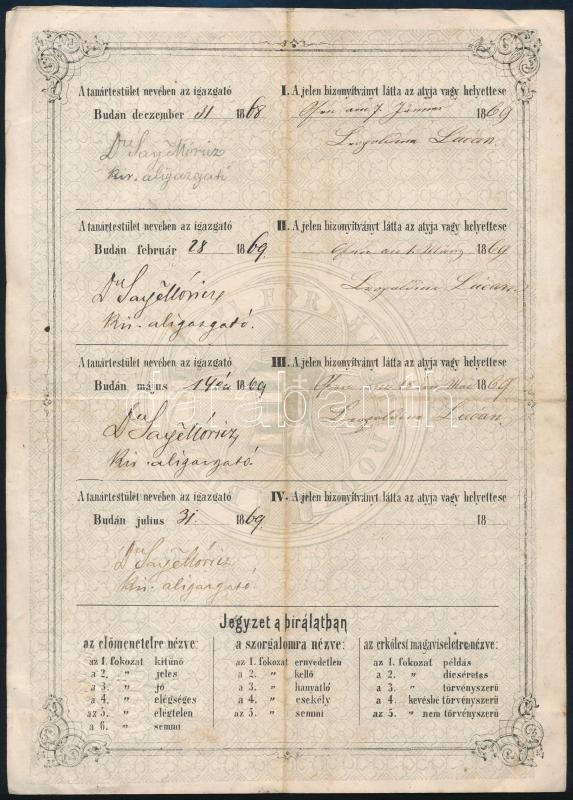 A tanártestület nevében az igazgató
Budán deczember 31 1868
Dr Say Móricz
kir. aligazgató
I. A jelen bizonyitványt látta az atyja vagy helyettese
Ofen am 7. Jänner 1869
Leopoldine Lucan.
A tanártestület nevében az igazgató
Budán február 28 1869.
Dr Say Móricz
kir. aligazgató.
II. A jelen bizonyitványt látta az atyja vagy helyettese
Ofen am 1. März 1869
Leopoldine Lucan.
A tanártestület nevében az igazgató
Budán május 14én 1869
Dr Say Móricz
kir. aligazgató.
III. A jelen bizonyitványt látta az atyja vagy helyettese
Ofen Mai 1869
Leopoldine Lucan
A tanártestület nevében az igazgató
Budán julius 31. 1869.
Dr Say Móricz
kir. aligazgató
IV. A jelen bizonyitványt látta az atyja vagy helyettese
18
darabanth
Jegyzet a birálatban
az előmenetelre nézve:
az 1. fokozat kitünő
a 2. " jeles
a 3. " jó
a 4. " elégséges
az 5. " elégtelen
a 6. " semmi
a szorgalomra nézve:
az 1. fokozat ernyedetlen
a 2. " kellő
a 3. " hanyatló
a 4. " csekély
az 5. " semmi
az erkölcsi magaviseletre nézve:
az 1. fokozat példás
a 2. " dicséretes
a 3. " törvényszerü
a 4. kevésbé törvényszerü
az 5. " nem törvényszerü